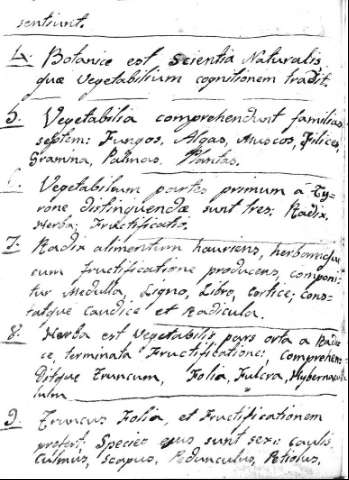 sentiunt.
4. Botanice est Scientia Naturalis
quæ Vegetabilium cognitionem tradit.
5. Vegetabilia comprehendunt familias
septem: Fungos, Algas, Muscos, Filices,
Gramina, Palmas, Plantas.
Vegetabilium partes primum a Ty-
rone distinguendæ sunt tres: Radix,
Herba, Fructificatio.
7. Radix alimentum hauriens, herbamque
cum fructificatione producens, componi-
tur Medulla, Ligno, Libro, Cortice; Cons-
tatque Caudice et Radicula.
8. Herba est Vegetabilis pars orta a Radi-
ce, terminata Fructificatione, comprehen-
ditque Truncum, Folia, Fulcra, Hybernacu-
lum
9. Truncus Folia, et Fructificationem
profert; Species ejus sunt sex: Caulis,
Culmus, Scapus, Pedunculus, Petiolus,